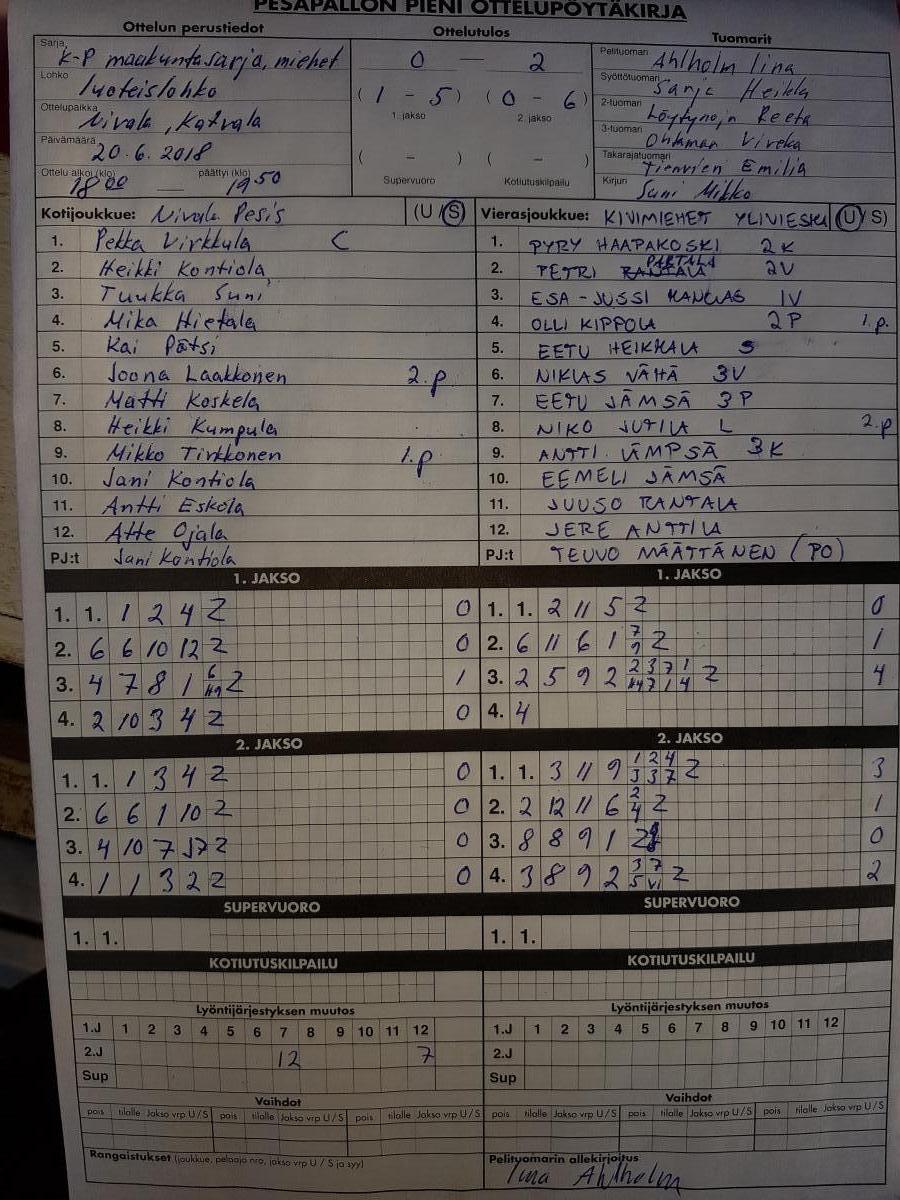 PESÄPALLON PIENI OTTELUPÖYTÄKIRJA
Ottelun perustiedot
Sarja
K-P maakuntasarja, miehet
Lohko
luoteislohko
Ottelupaikka
Nivala, Katvala
Päivämäärä
20.6.2018
Ottelu alkoi (klo) päättyi (klo)
18 00 — 19 50
Ottelutulos
0 — 2
( 1 - 5 ) ( 0 - 6 )
1. jakso 2. jakso
( - ) ( - )
Supervuoro Kotiutuskilpailu
Tuomarit
Pelituomari Ahlholm Iina
Syöttötuomari Sarja Heikki
2-tuomari Löytynoja Reeta
3-tuomari Ohkman Viveka
Takarajatuomari Emilia
Kirjuri Suni Mikko
Kotijoukkue: Nivala Pesis (U / S)
1. Pekka Virkkula C
2. Heikki Kontiola
3. Tuukka Suni
4. Mika Hietala
5. Kai Pätsi
6. Joona Laakkonen 2.p
7. Matti Koskela
8. Heikki Kumpula
9. Mikko Tirkkonen 1.p
10. Jani Kontiola
11. Antti Eskola
12. Atte Ojala
PJ:t Jani Kontiola
Vierasjoukkue: KIVIMIEHET YLIVIESKA (U / S)
1. PYRY HAAPAKOSKI 2K
2. PETRI PARTALA 2V
3. ESA-JUSSI KANGAS 1V
4. OLLI KIPPOLA 2P 1.p.
5. EETU HEIKKALA S
6. NIKLAS VÄHÄ 3V
7. EETU JÄMSÄ 3P
8. NIKO JUTILA L 2.p
9. ANTTI JÄMPSÄ 3K
10. EEMELI JÄMSÄ
11. JUUSO RANTALA
12. JERE ANTTILA
PJ:t TEUVO MÄÄTTÄNEN (PO)
1. JAKSO
1. 1. 1 2 4 Z 0
2. 6 6 10 12 Z 0
3. 4 7 8 1 6 Z 1
4. 2 10 3 4 Z 0
1. JAKSO
1. 1. 2 11 5 Z 0
2. 6 11 6 1 7 9 Z 1
3. 2 5 9 2 2 3 7 1 7 1 4 Z 4
4. 4
2. JAKSO
1. 1. 1 3 4 Z 0
2. 6 6 1 10 Z 0
3. 4 10 7 12 Z 0
4. 1 1 3 2 Z 0
2. JAKSO
1. 1. 3 11 9 1 2 4 3 3 7 Z 3
2. 2 12 11 6 2 4 Z 1
3. 8 8 9 1 Z 0
4. 3 8 9 2 3 7 5 VI Z 2
SUPERVUORO
1. 1.
SUPERVUORO
1. 1.
KOTIUTUSKILPAILU
KOTIUTUSKILPAILU
Lyöntijärjestyksen muutos
1.J 1 2 3 4 5 6 7 8 9 10 11 12
2.J 12 7
Sup
Lyöntijärjestyksen muutos
1.J 1 2 3 4 5 6 7 8 9 10 11 12
2.J
Sup
Vaihdot
pois tilalle Jakso vrp U / S pois tilalle Jakso vrp U / S pois tilalle Jakso vrp U / S
Vaihdot
pois tilalle Jakso vrp U / S pois tilalle Jakso vrp U / S pois tilalle Jakso vrp U / S
Rangaistukset (joukkue, pelaaja nro, jakso vrp U / S ja syy)
Pelituomarin allekirjoitus
Iina Ahlholm